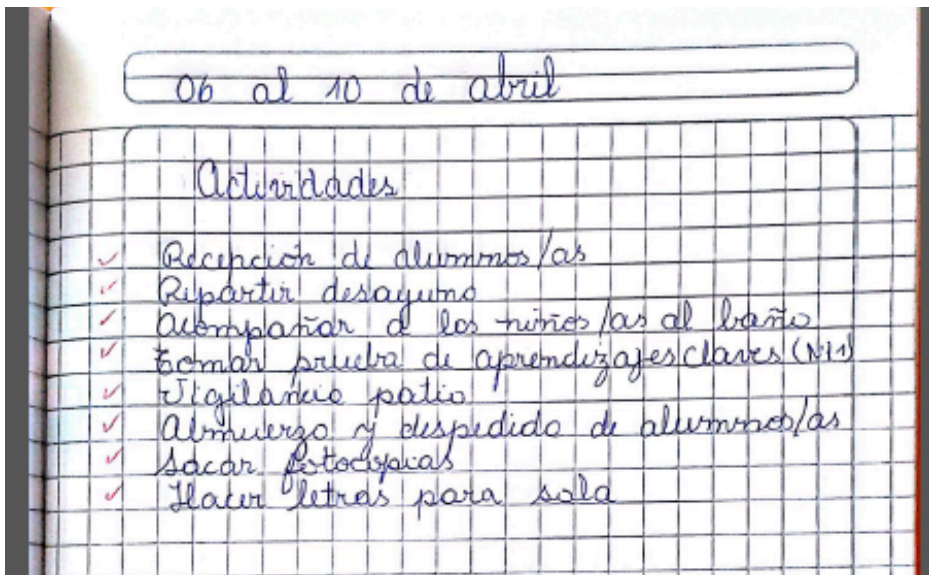 06 al 10 de abril
Actividades
Recepción de alumnos/as
Repartir desayuno
Acompañar a los niños/as al baño
Tomar prueba de aprendizajes claves (N11)
Vigilancia patio
Almuerzo y despedida de alumnos/as
Sacar fotocopias
Hacer letras para sala